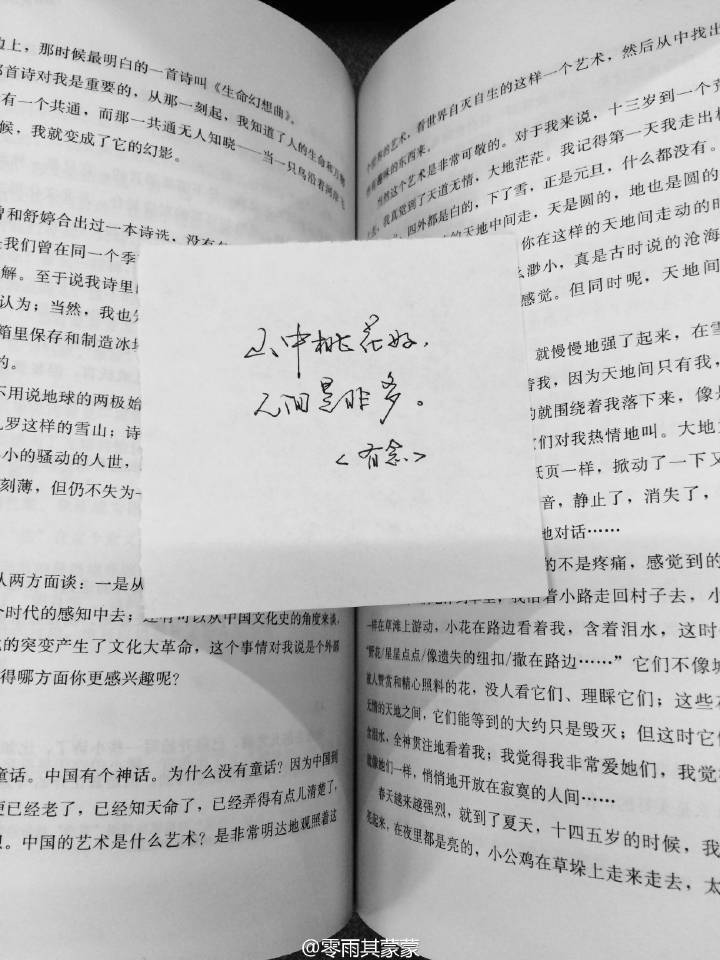 边上，那时候最明白的一首诗叫《生命幻想曲》。
那首诗对我是重要的，从那一刻起，我知道了人的生命和万物
有一个共通，而那一共通无人知晓——当一只鸟沿着河岸飞
候，我就变成了它的幻影。
曾和舒婷合出过一本诗选，没有
是我们曾在同一个季
解。至于说我诗里
认为；当然，我也
箱里保存和制造冰块
的。
不用说地球的两极始
扎罗这样的雪山；诗
小的骚动的人世，
刻薄，但仍不失为一
从两方面谈：一是从
个时代的感知中去；还有可以从中国文化史的角度来谈，
的突变产生了文化大革命，这个事情对我说是个外部
得哪方面你更感兴趣呢？
童话。中国有个神话。为什么没有童话？因为中国到
更已经老了，已经知天命了，已经弄得有点儿清楚了，
。中国的艺术是什么艺术？是非常明达地观照着这
山中桃花好，
人间是非多。
<有念>
个世界的艺术，看世界自灭自生的这样一个艺术，然后从中找出
些有趣味的东西来。
当然这个艺术是非常可敬的。对于我来说，十三岁到一个荒
上去，我真觉到了天道无情，大地茫茫。我记得第一天我走出村
，四外都是白的，下了雪，正是元旦，什么都没有。
的天地中间走，天是圆的，地也是圆的
你在这样的天地间走动的时
么渺小，真是古时说的沧海
感觉。但同时呢，天地间
就慢慢地强了起来，在雪
着我，因为天地间只有我，
的就围绕着我落下来，像是
它们对我热情地叫。大地
纸页一样，掀动了一下又
音，静止了，消失了，
地对话……
的不是疼痛，感觉到的
我沿着小路走回村子去，小
一样在草滩上游动，小花在路边看着我，含着泪水，这时
“野花/星星点点/像遗失的纽扣/撒在路边……”它们不像
被人赞赏和精心照料的花，没人看它们、理睬它们；这些
无情的天地之间，它们能等到的大约只是毁灭；但这时它
含泪水，全神贯注地看着我；我觉得我非常爱她们，我觉
就像她们一样，悄悄地开放在寂寞的人间……
春天越来越强烈，就到了夏天，十四五岁的时候，我
亮起来，在夜里都是亮的，小公鸡在草垛上走来走去，太
@零雨其蒙蒙